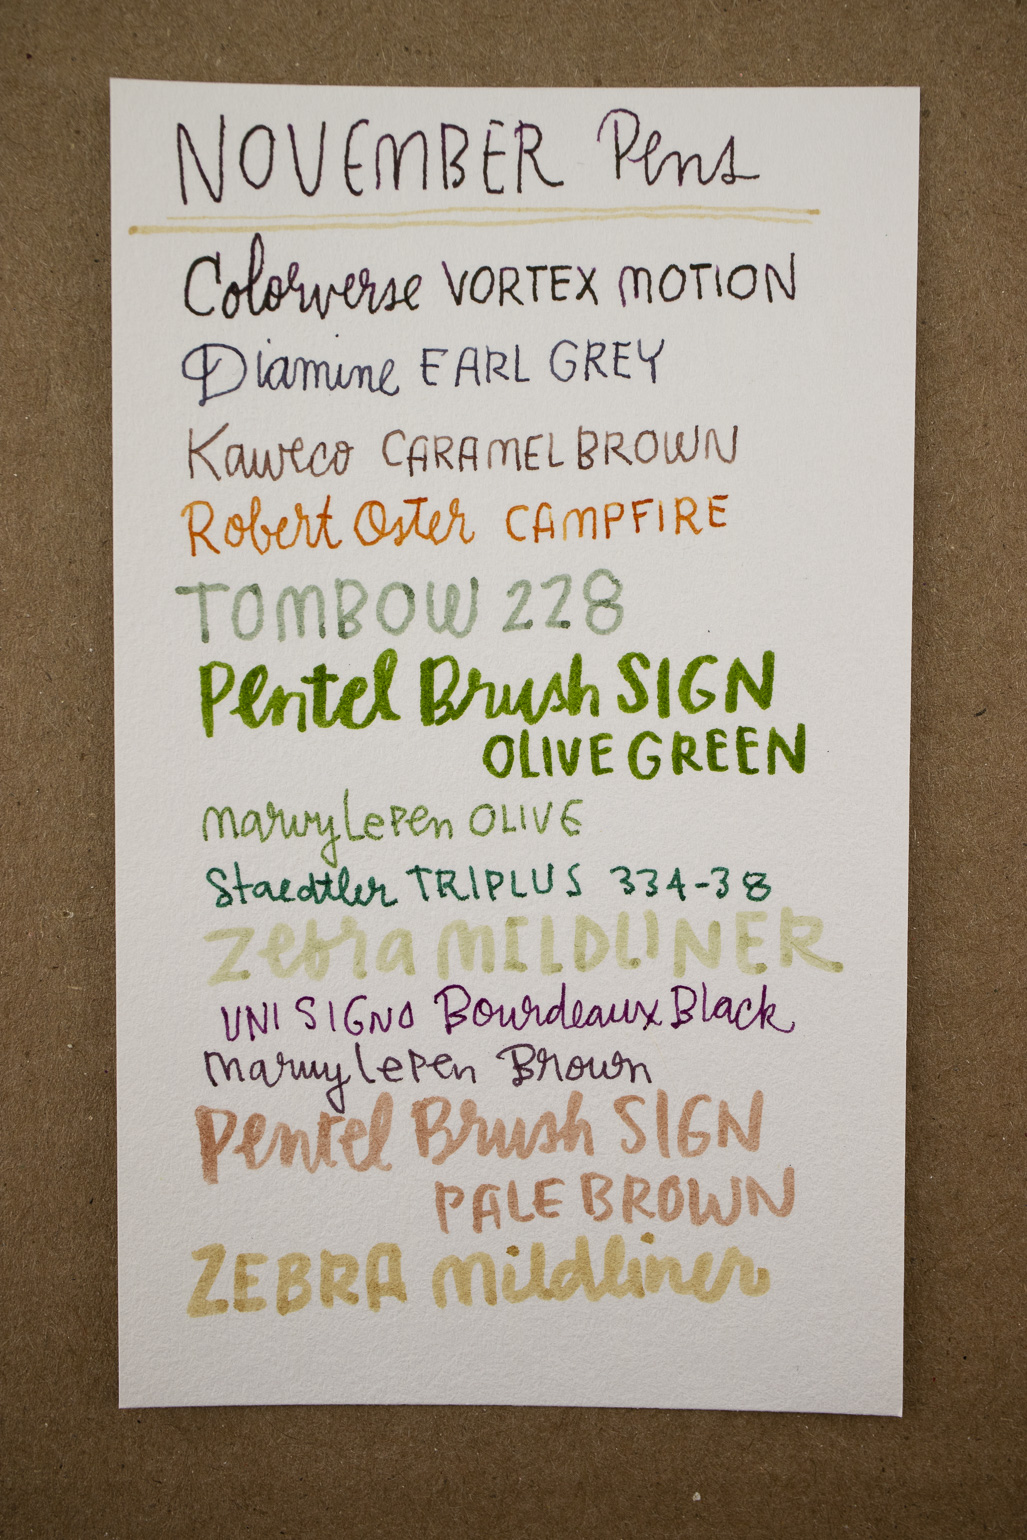 NOVEMBER Pens
Colorverse VORTEX MOTION
Diamine EARL GREY
Kaweco CARAMEL BROWN
Robert Oster CAMPFIRE
TOMBOW 228
Pentel Brush SIGN
OLIVE GREEN
Marvy LePen OLIVE
Staedtler TRIPLUS 334-38
Zebra MILDLINER
UNI SIGNO Bourdeaux Black
Marvy LePen Brown
Pentel Brush SIGN
PALE BROWN
ZEBRA mildliner